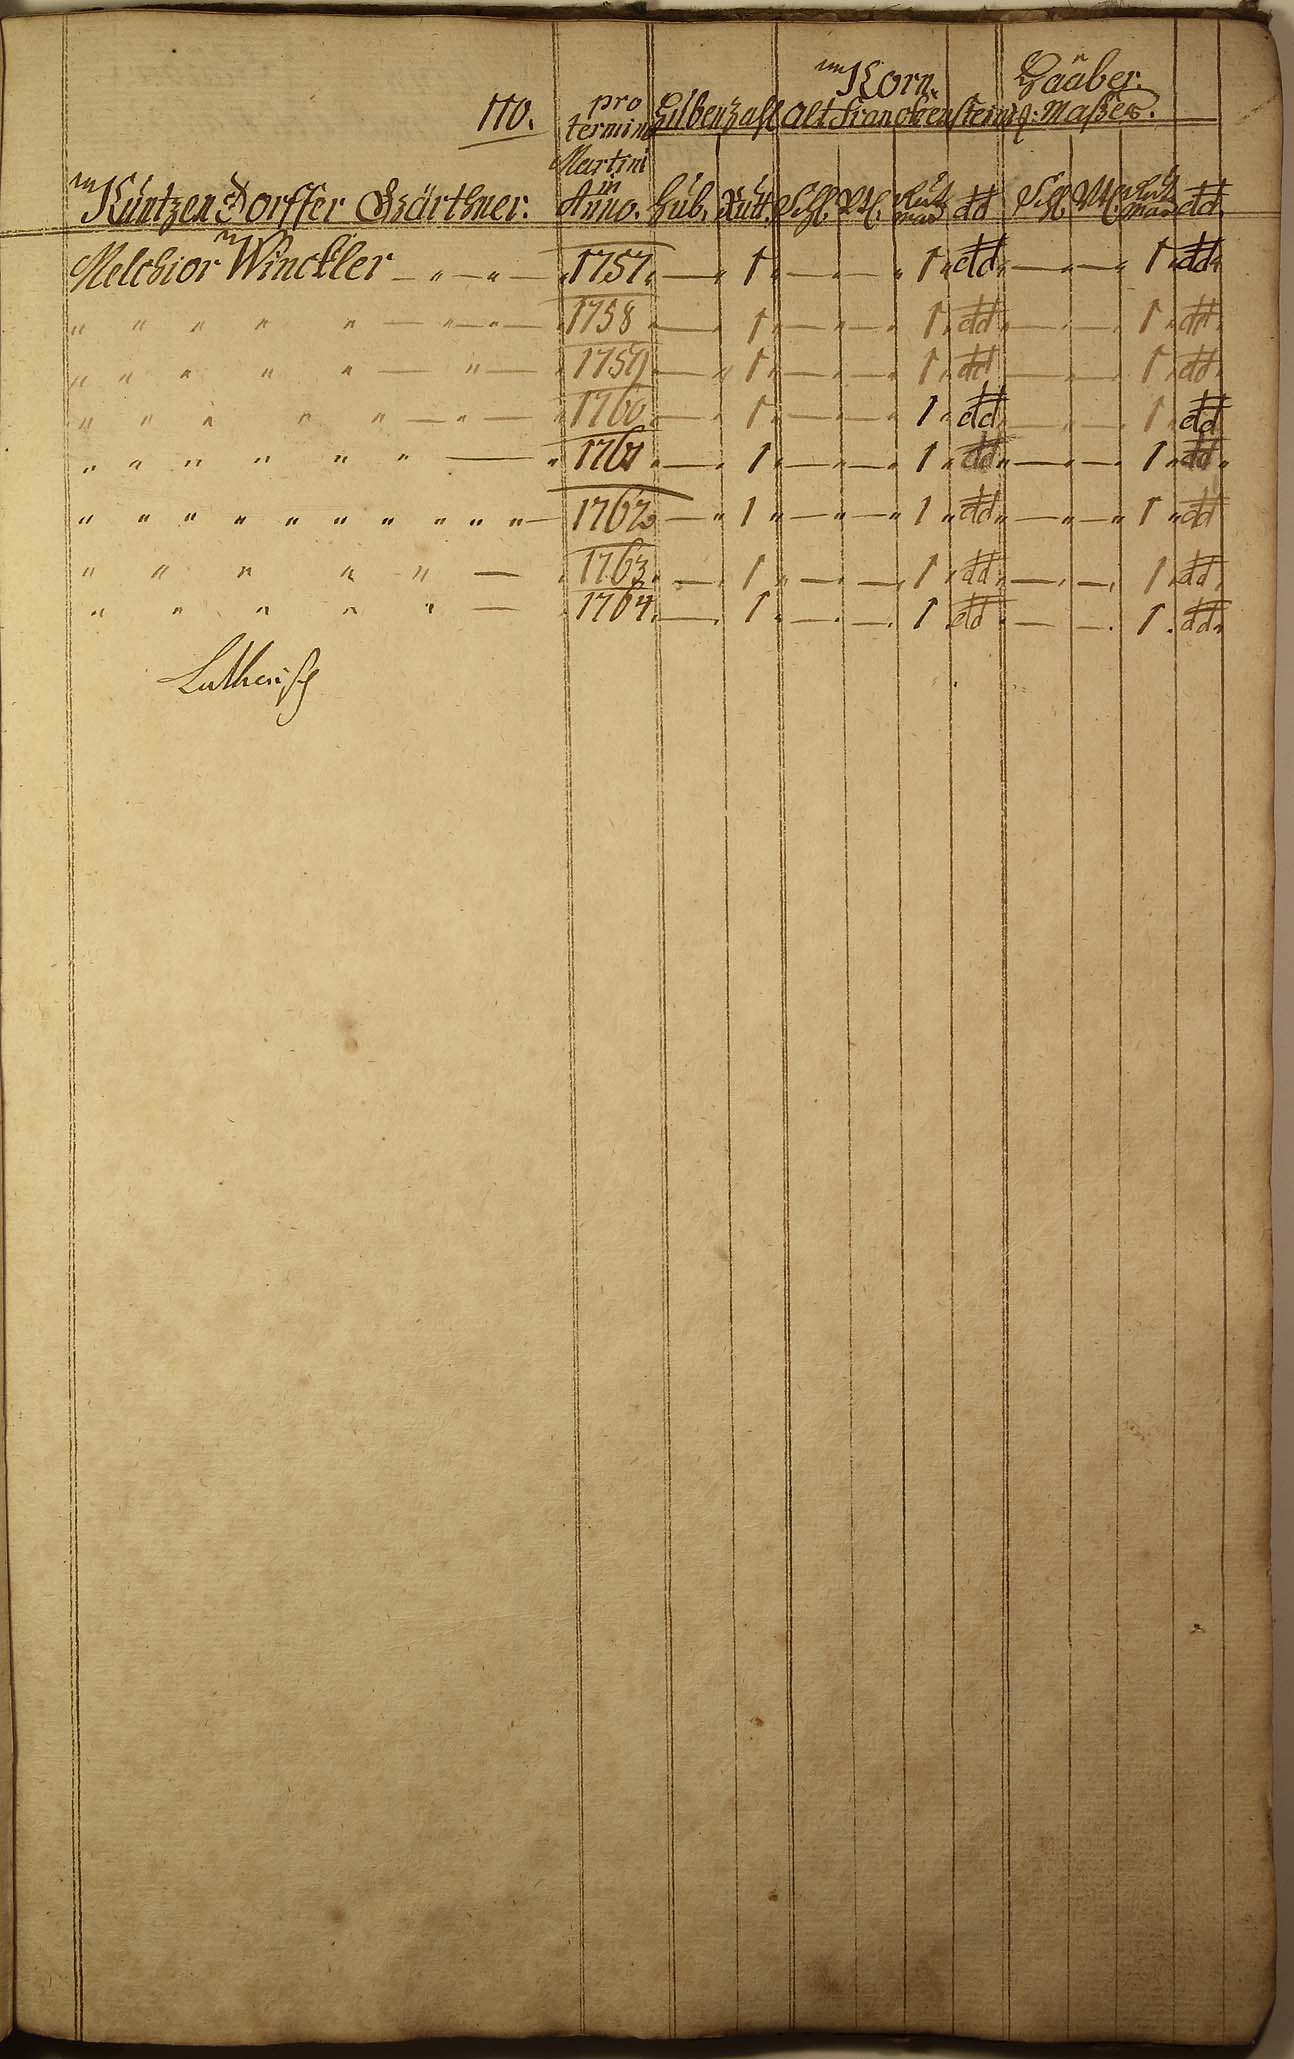 Korn. Haaber.
110. pro Hubenzahl Alt Franckensteinisch: Maßes.
termino
Martini
in
Küntzen Dorffer Gärthner: Anno. Hub. Rutt. Schl. Vtl. dd Schl. Vtl. dd.
Melchior Winckler — " — " — 1757. — " 1 " — " — " 1 " dd " — " — " 1 " dd "
" " " " " — " — " — 1758 " — " 1 " — " — " 1 " dd " — " — " 1 " dd "
" " " " " — " — 1759 " — " 1 " — " — " 1 " dd " — " — " 1 " dd "
" " " " " — " — 1760 " — " 1 " — " — " 1 " dd " — " — " 1 " dd
" " " " " " — " 1761 " — " 1 " — " — " 1 " dd " — " — " 1 " dd "
" " " " " " " " " " " — 1762 " — " 1 " — " — " 1 " dd " — " — " 1 " dd
" " " " " — 1763 " — " 1 " — " — " 1 " dd " — " — " 1 " dd "
" " " " " — 1764 " — " 1 " — " — " 1 " dd " — " — " 1 " dd "
Lutherisch